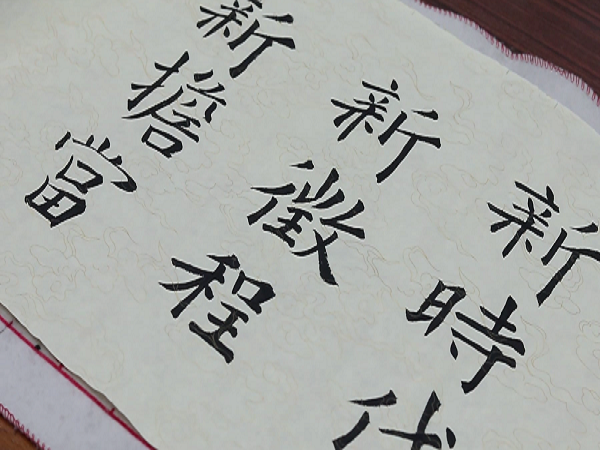 新時代
新徵程
新擔當